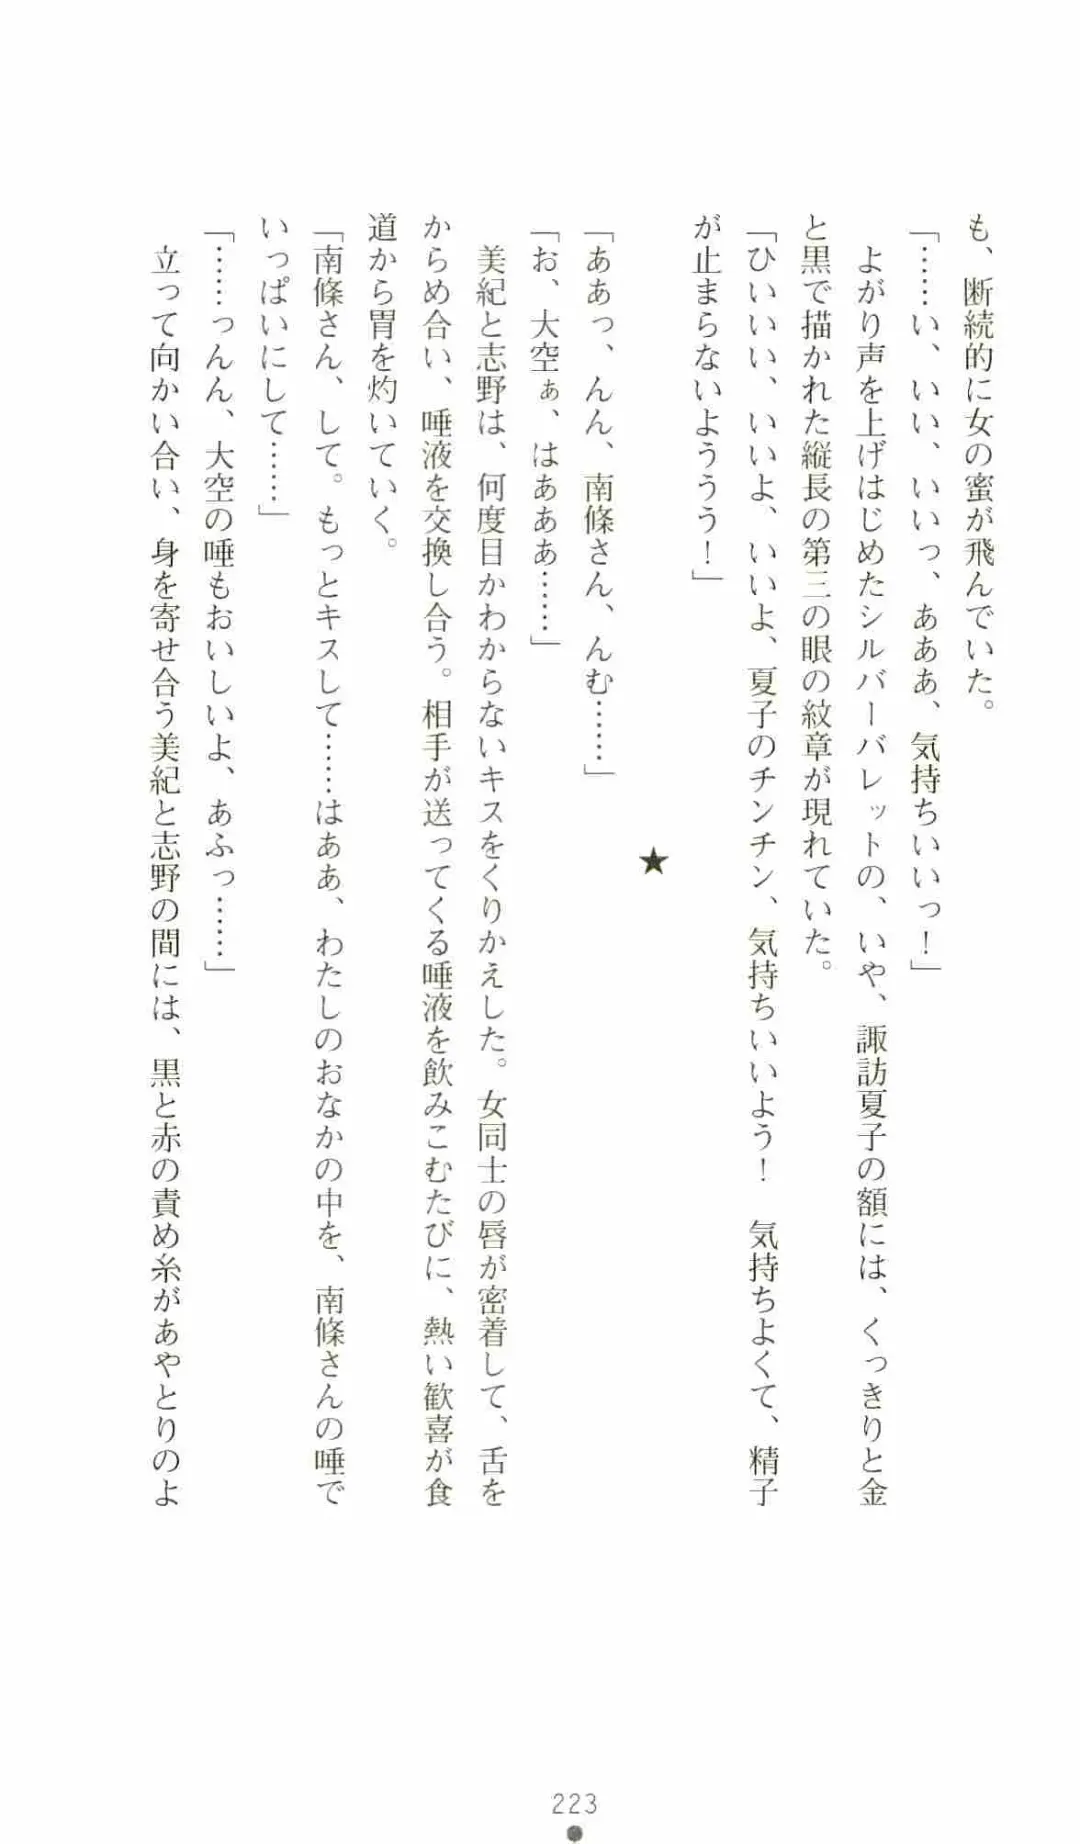 も、断続的に女の蜜が飛んでいた。
「……い、いい、いいっ、あああ、気持ちいいっ！」
よがり声を上げはじめたシルバーバレットの、いや、諏訪夏子の額には、くっきりと金
と黒で描かれた縦長の第三の眼の紋章が現れていた。
「ひいいい、いいよ、いいよ、夏子のチンチン、気持ちいいよう！　気持ちよくて、精子
が止まらないようぅう！」
★
「ああっ、んん、南條さん、んむ……」
「お、大空ぁ、はあああ……」
美紀と志野は、何度目かわからないキスをくりかえした。女同士の唇が密着して、舌を
からめ合い、唾液を交換し合う。相手が送ってくる唾液を飲みこむたびに、熱い歓喜が食
道から胃を灼いていく。
「南條さん、して。もっとキスして……はああ、わたしのおなかの中を、南條さんの唾で
いっぱいにして……」
「……っんん、大空の唾もおいしいよ、あふっ……」
立って向かい合い、身を寄せ合う美紀と志野の間には、黒と赤の責め糸があやとりのよ
223